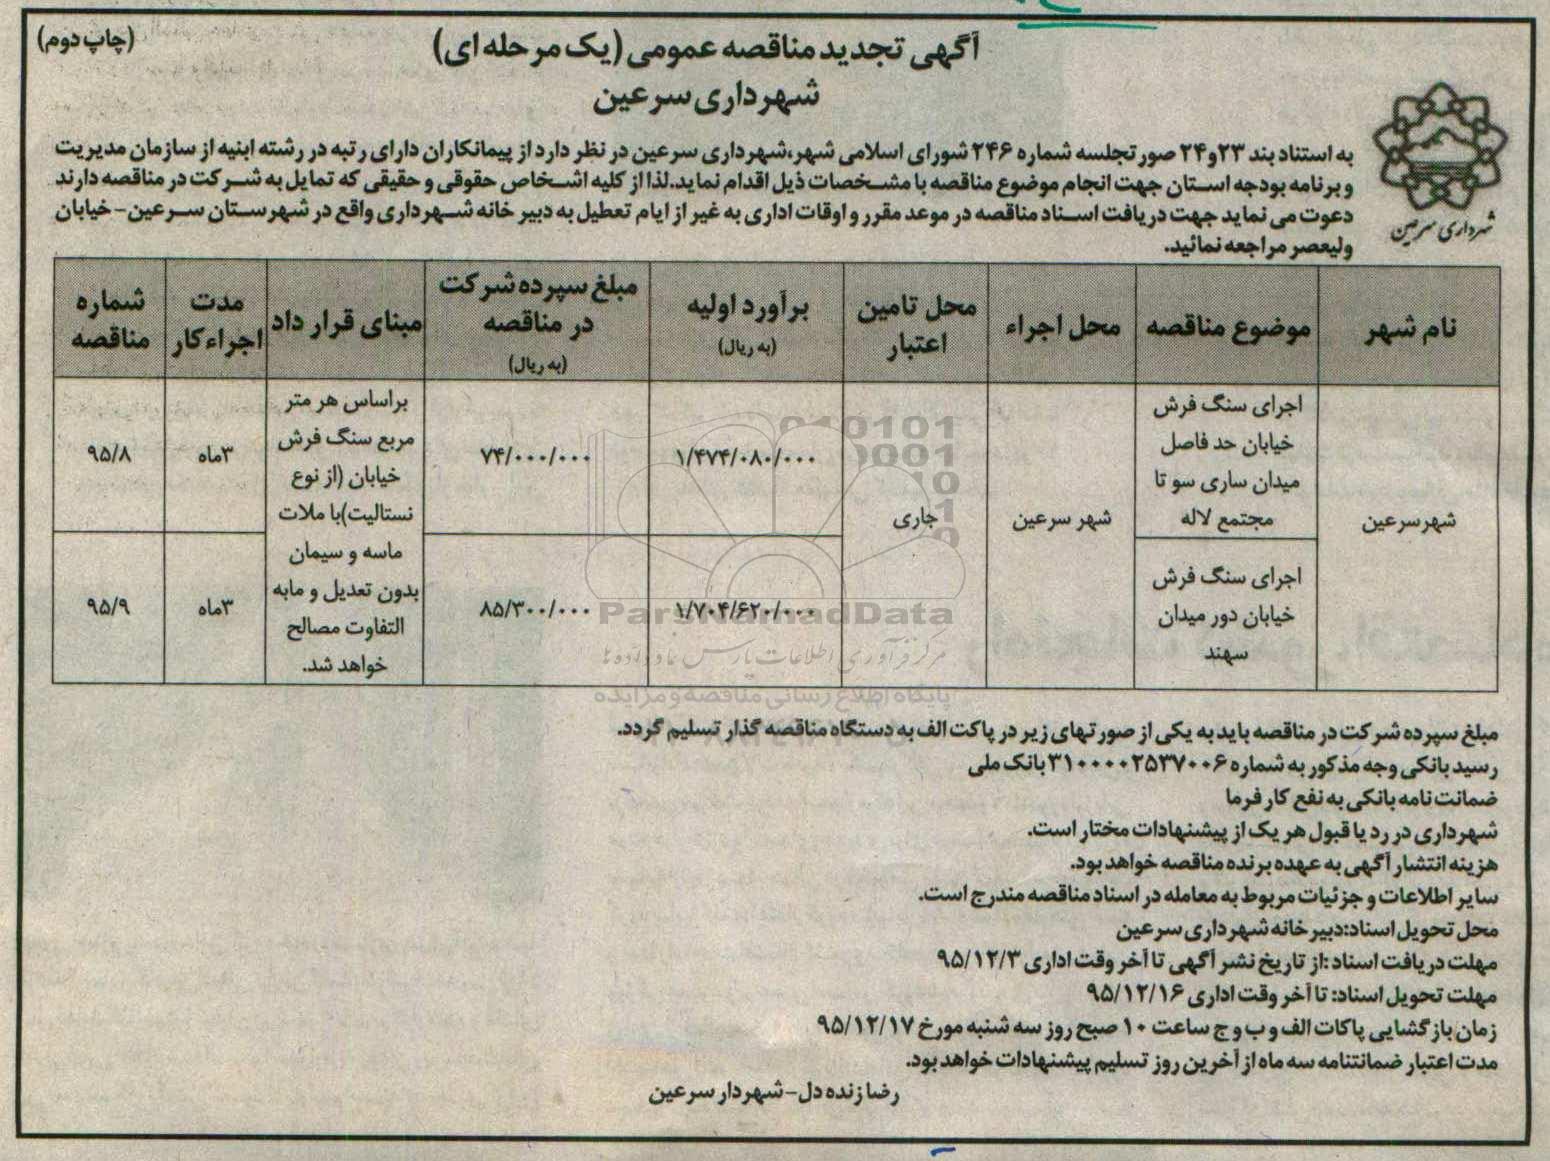 (چاپ دوم)
آگهی تجدید مناقصه عمومی (یک مرحله ای)
شهرداری سرعین
شهرداری سرعین
به استناد بند ۲۳و۲۴ صورتجلسه شماره ۲۴۶ شورای اسلامی شهر،شهرداری سرعین در نظر دارد از پیمانکاران دارای رتبه در رشته ابنیه از سازمان مدیریت
و برنامه بودجه استان جهت انجام موضوع مناقصه با مشخصات ذیل اقدام نماید.لذا از کلیه اشخاص حقوقی و حقیقی که تمایل به شرکت در مناقصه دارند
دعوت می نماید جهت دریافت اسناد مناقصه در موعد مقرر و اوقات اداری به غیر از ایام تعطیل به دبیر خانه شهرداری واقع در شهرستان سرعین-خیابان
ولیعصر مراجعه نمائید.
نام شهر
موضوع مناقصه
محل اجراء
محل تامین
اعتبار
برآورد اولیه
(به ریال)
مبلغ سپرده شرکت
در مناقصه
(به ریال)
مبنای قرار داد
مدت
اجراءکار
شماره
مناقصه
شهرسرعین
اجرای سنگ فرش
خیابان حد فاصل
میدان ساری سو تا
مجتمع لاله
شهر سرعین
جاری
۱/۴۷۴/۰۸۰/۰۰۰
۷۴/۰۰۰/۰۰۰
براساس هر متر
مربع سنگ فرش
خیابان (از نوع
نستالیت)با ملات
ماسه و سیمان
بدون تعدیل و مابه
التفاوت مصالح
خواهد شد.
۳ماه
۹۵/۸
اجرای سنگ فرش
خیابان دور میدان
سهند
۱/۷۰۴/۶۲۰/۰۰۰
۸۵/۳۰۰/۰۰۰
۳ماه
۹۵/۹
ParsNamadData
مرکز فرآوری اطلاعات پارس نماد داده ها
پایگاه اطلاع رسانی مناقصه و مزایده
مبلغ سپرده شرکت در مناقصه باید به یکی از صورتهای زیر در پاکت الف به دستگاه مناقصه گذار تسلیم گردد.
رسید بانکی وجه مذکور به شماره ۳۱۰۰۰۰۲۵۳۷۰۰۶ بانک ملی
ضمانت نامه بانکی به نفع کار فرما
شهرداری در رد یا قبول هر یک از پیشنهادات مختار است.
هزینه انتشار آگهی به عهده برنده مناقصه خواهد بود.
سایر اطلاعات و جزئیات مربوط به معامله در اسناد مناقصه مندرج است.
محل تحویل اسناد:دبیر خانه شهرداری سرعین
مهلت دریافت اسناد :از تاریخ نشر آگهی تا آخر وقت اداری ۹۵/۱۲/۳
مهلت تحویل اسناد: تا آخر وقت اداری ۹۵/۱۲/۱۶
زمان بازگشایی پاکات الف و ب و ج ساعت ۱۰ صبح روز سه شنبه مورخ ۹۵/۱۲/۱۷
مدت اعتبار ضمانتنامه سه ماه از آخرین روز تسلیم پیشنهادات خواهد بود.
رضا زنده دل-شهردار سرعین